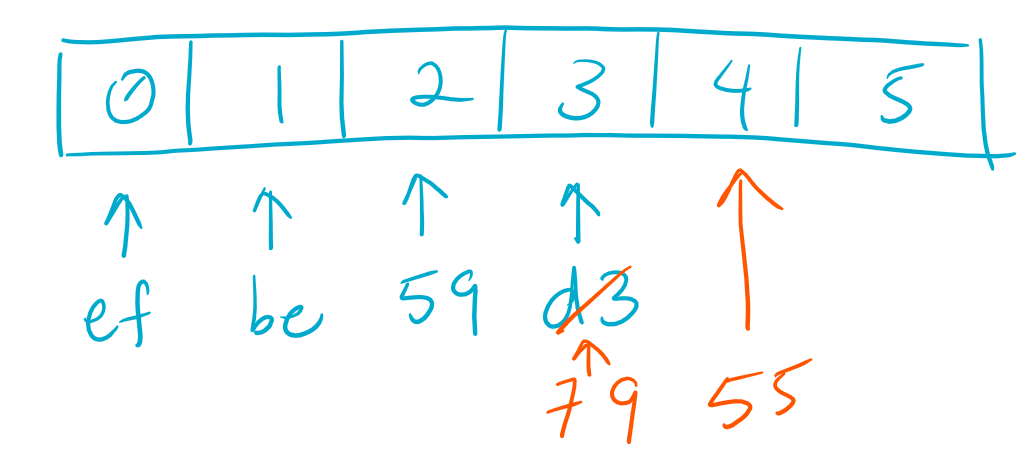 0 1 2 3 4 5
ef be 59 d3
79 55